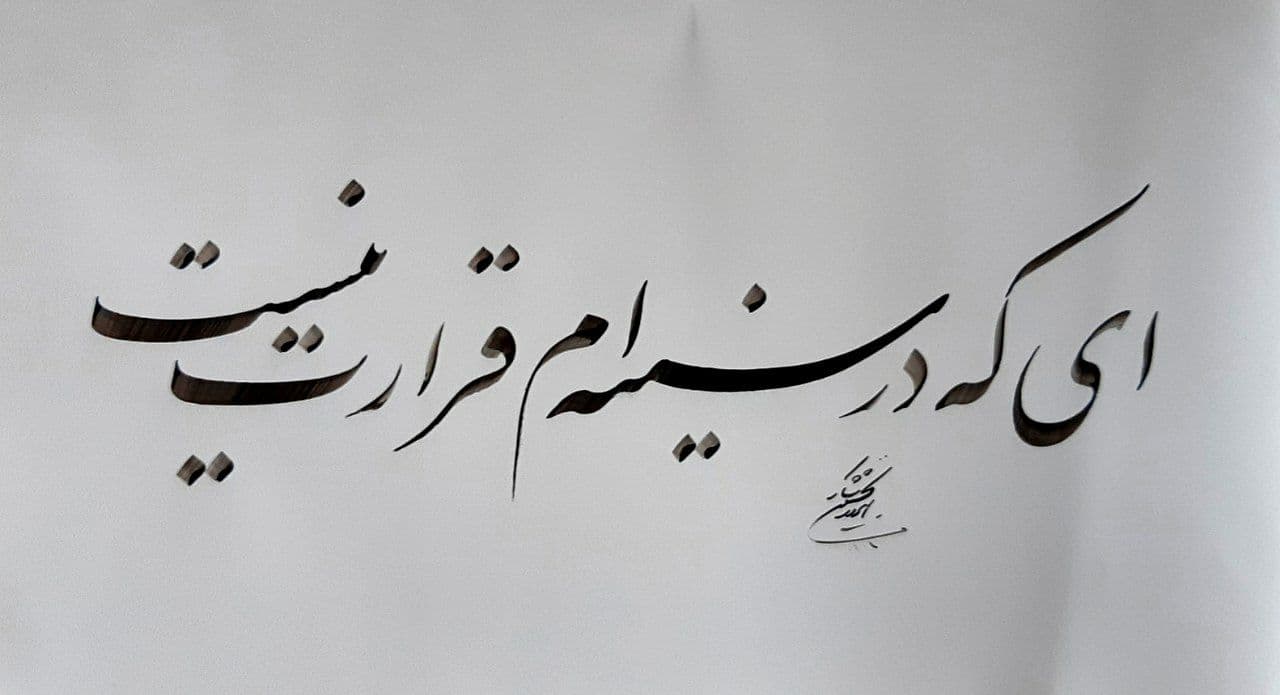 ای که در سینه ام قرارت نیست